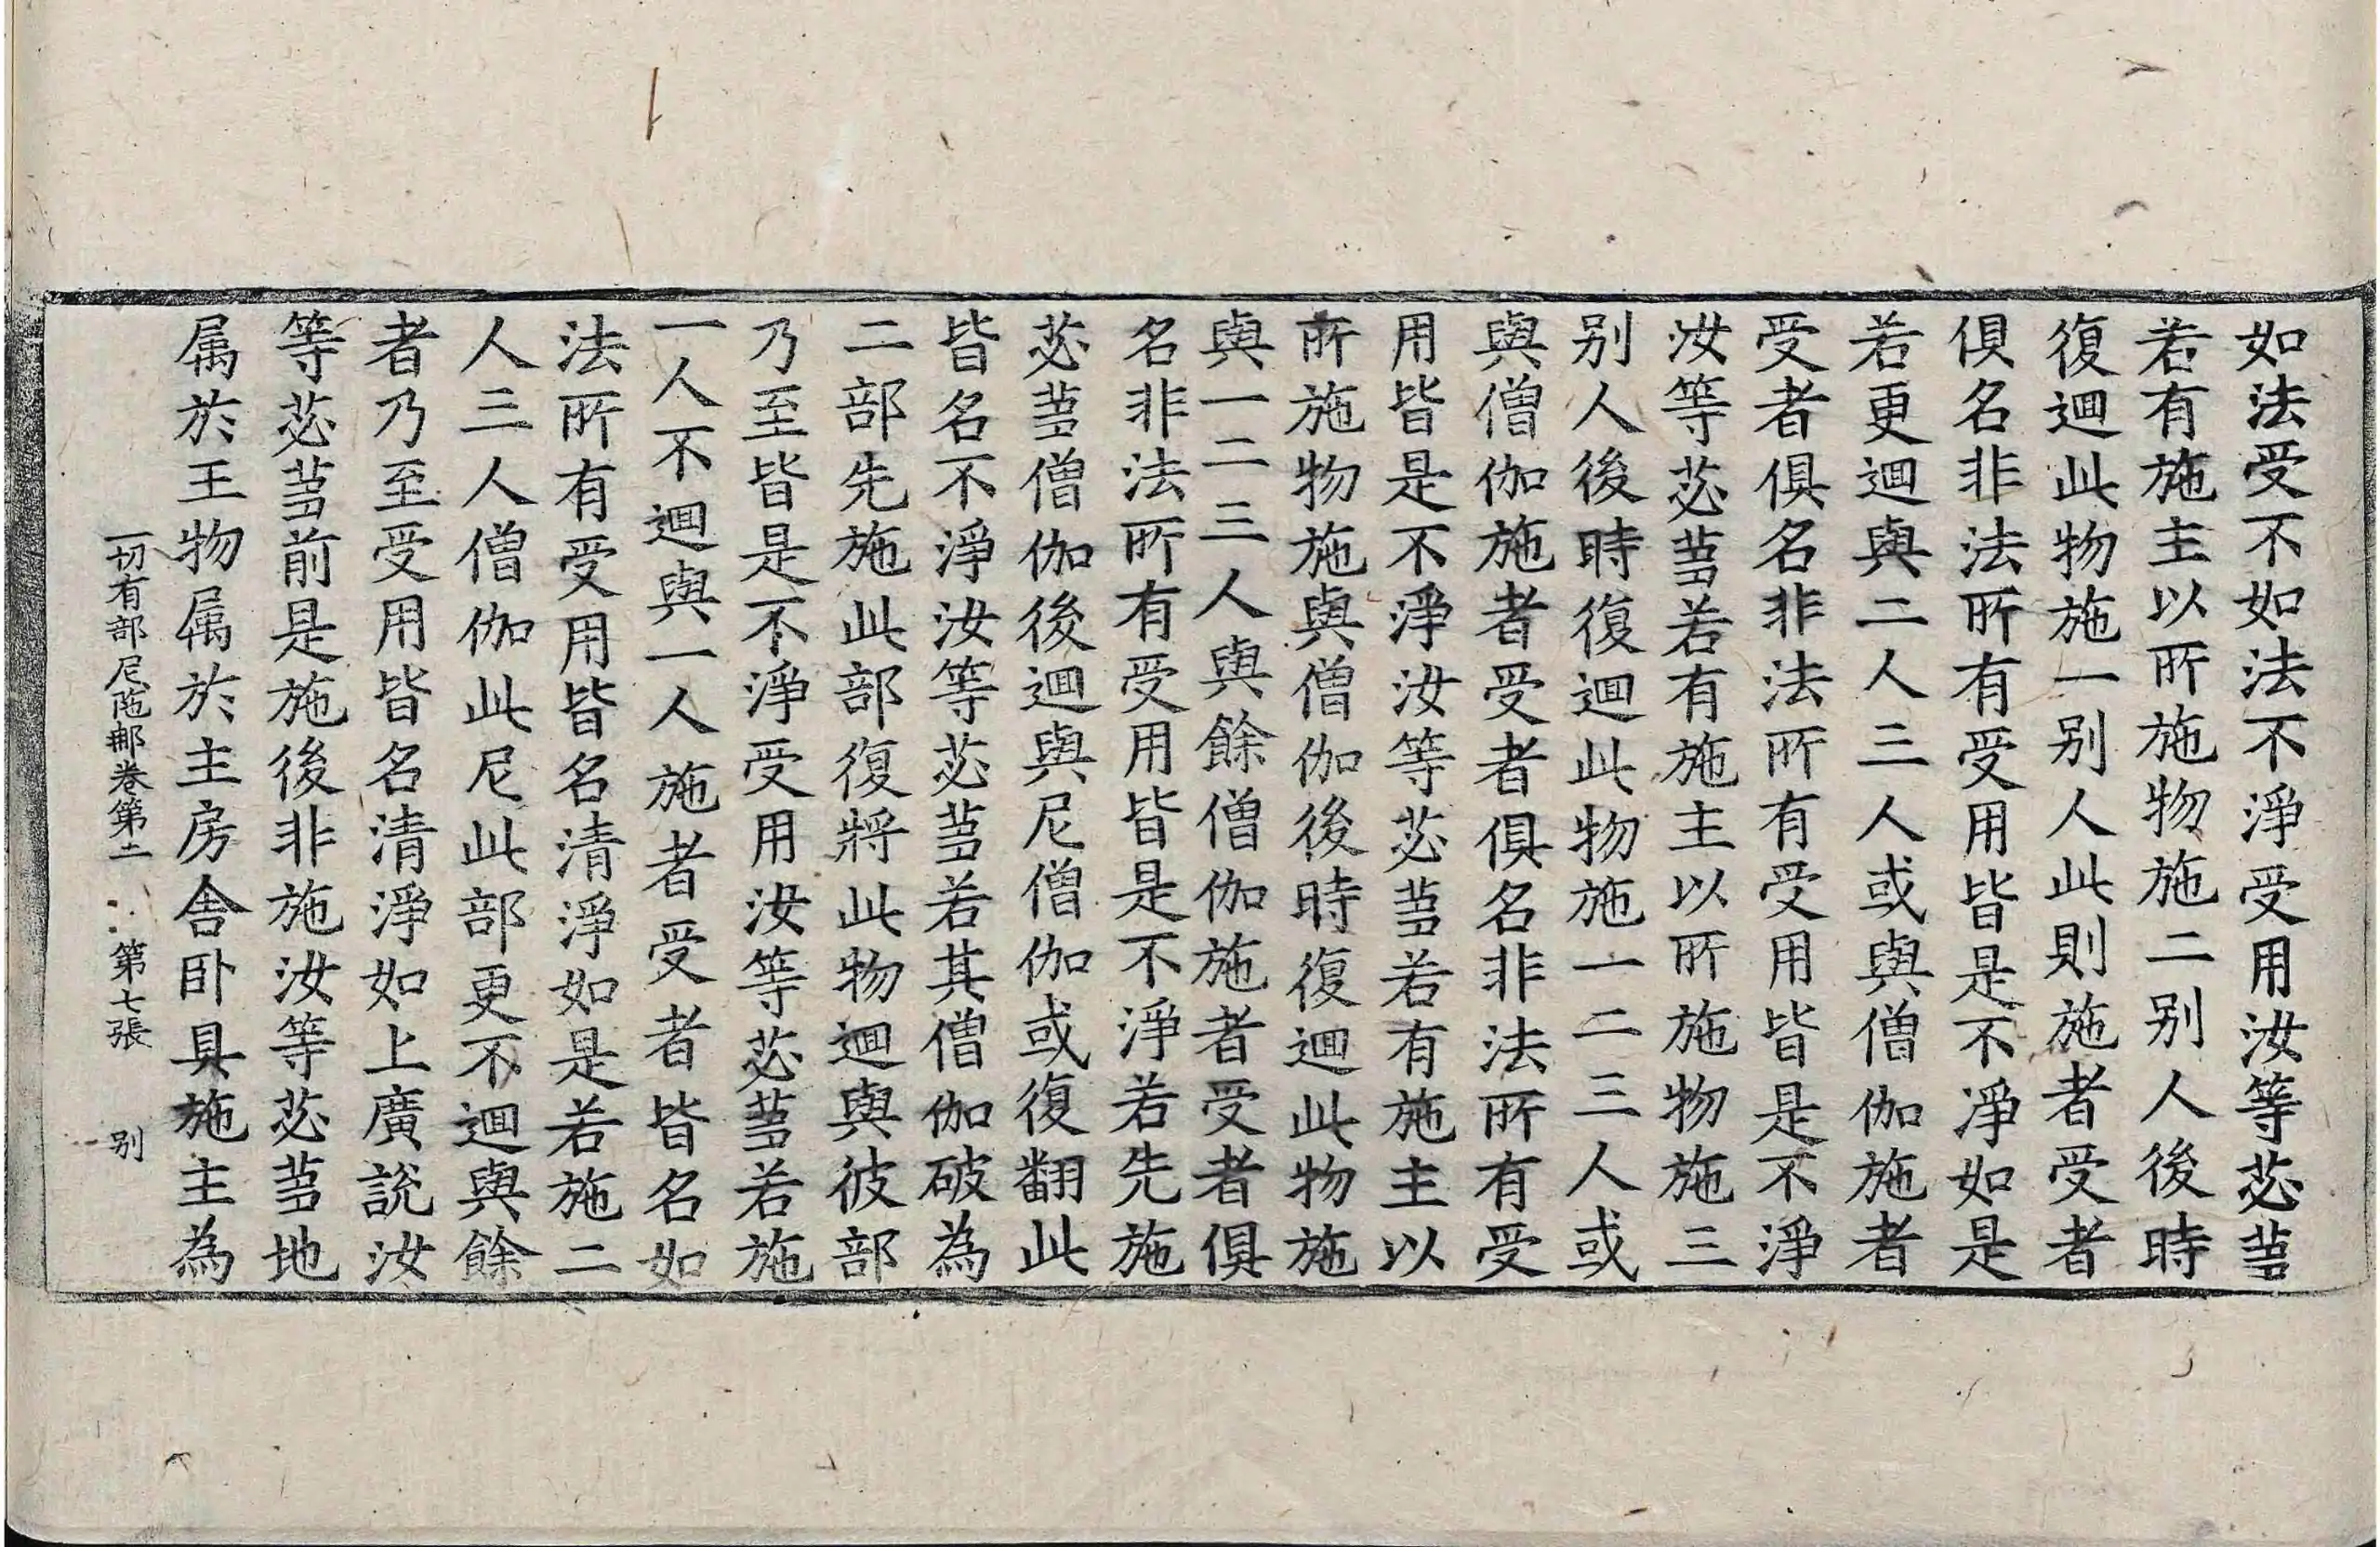 如法受不如法不淨受用汝等苾蒭
若有施主以所施物施二别人後時
復迴此物施一别人此則施者受者
俱名非法所有受用皆是不淨如是
若更迴與二人三人或與僧伽施者
受者俱名非法所有受用皆是不淨
汝等苾蒭若有施主以所施物施三
别人後時復迴此物施一二三人或
與僧伽施者受者俱名非法所有受
用皆是不淨汝等苾蒭若有施主以
所施物施與僧伽後時復迴此物施
與一二三人與餘僧伽施者受者俱
名非法所有受用皆是不淨若先施
苾蒭僧伽後迴與尼僧伽或復翻此
皆名不淨汝等苾蒭若其僧伽破為
二部先施此部復將此物迴與彼部
乃至皆是不淨受用汝等苾蒭若施
一人不迴與一人施者受者皆名如
法所有受用皆名清淨如是若施二
人三人僧伽此尼此部更不迴與餘
者乃至受用皆名清淨如上廣說汝
等苾蒭前是施後非施汝等苾蒭地
属於王物属於主房舍卧具施主為
一切有部尼陁那卷第二 第七張 别